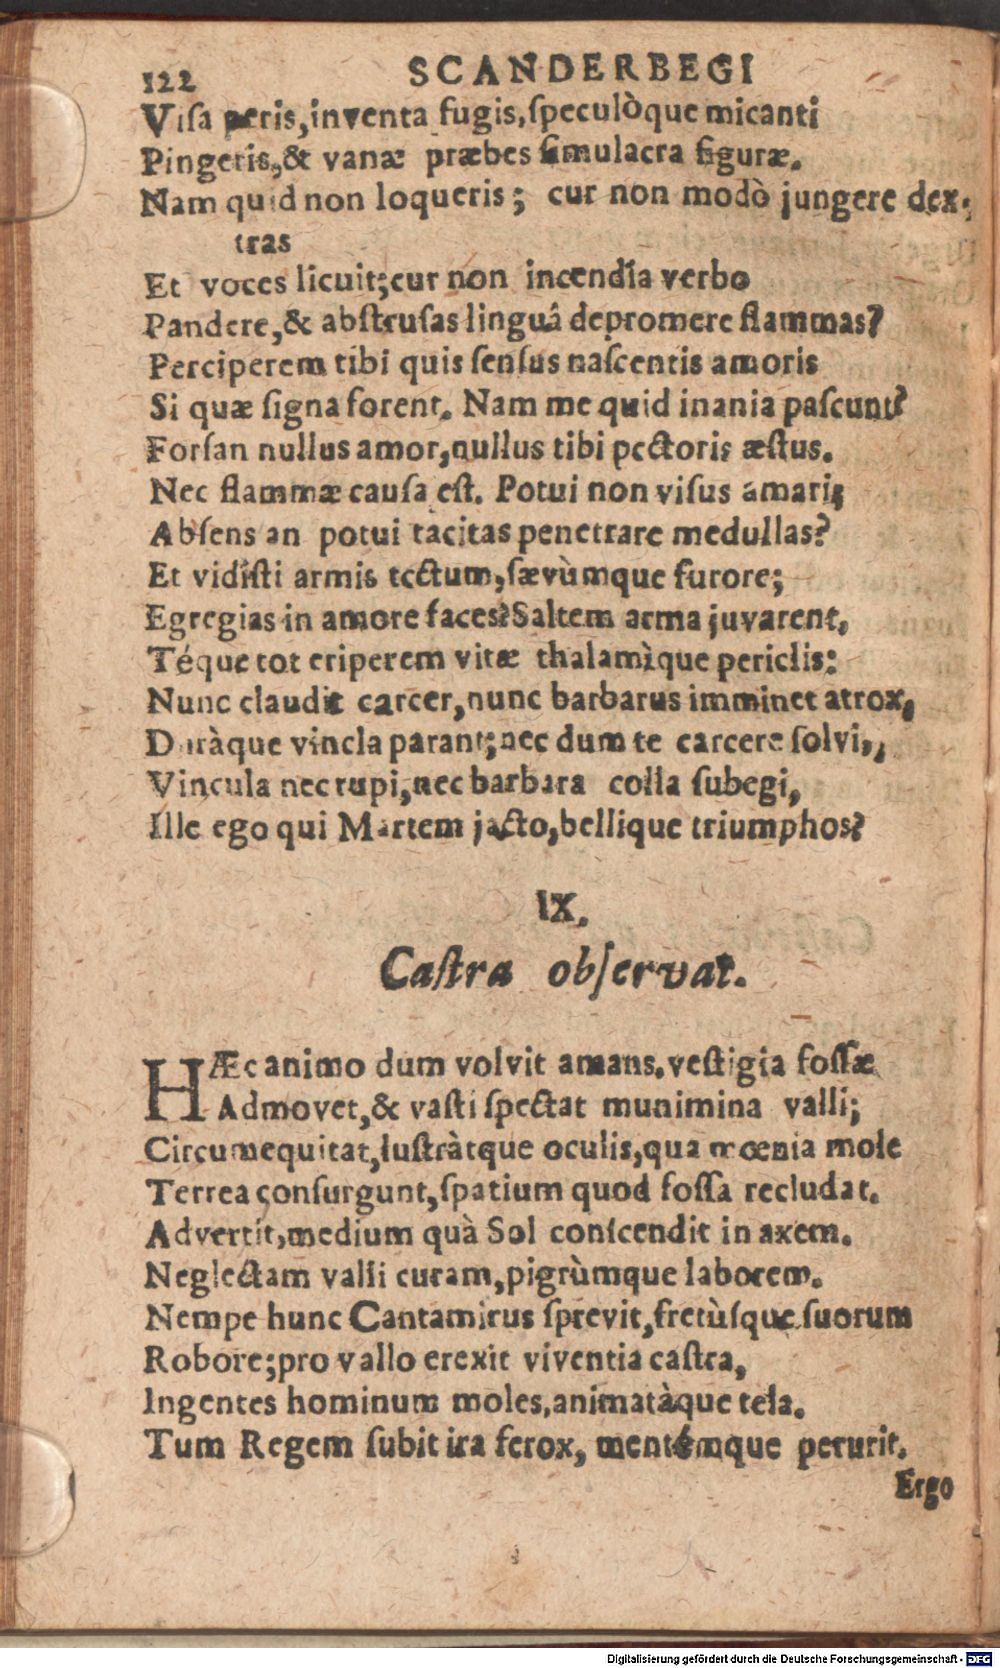 122 SCANDERBEGI
Viſa peris,inventa fugis,ſpeculòque micanti
Pingeris,& vanæ præbes ſimulacra figuræ.
Nam quid non loqueris; cur non modò jungere dex-
tras
Et voces licuit;cur non incendia verbo
Pandere,& abſtruſas linguâ depromere flammas?
Perciperem tibi quis ſenſus naſcentis amoris
Si quæ ſigna forent. Nam me quid inania paſcunt?
Forſan nullus amor,nullus tibi pectoris æſtus.
Nec flammæ cauſa eſt. Potui non viſus amari;
Abſens an potui tacitas penetrare medullas?
Et vidiſti armis tectum,ſævùmque furore;
Egregias in amore faces?Saltem arma juvarent,
Téque tot eriperem vitæ thalamìque periclis:
Nunc claudit carcer,nunc barbarus imminet atrox,
Duràque vincla parant;nec dum te carcere ſolvi,
Vincula nec rupi,nec barbara colla ſubegi,
Ille ego qui Martem jacto,bellique triumphos?
IX.
Caſtra obſervat.
HÆc animo dum volvit amans,veſtigia foſſæ
Admovet,& vaſti ſpectat munimina valli;
Circumequitat,luſtràtque oculis,qua mœnia mole
Terrea conſurgunt,ſpatium quod foſſa recludat.
Advertit,medium quà Sol conſcendit in axem.
Neglectam valli curam,pigrùmque laborem.
Nempe hunc Cantamirus ſprevit,fretùſque ſuorum
Robore;pro vallo erexit viventia caſtra,
Ingentes hominum moles,animatàque tela.
Tum Regem ſubit ira ferox, mentémque perurit.
Ergo
Digitalisierung gefördert durch die Deutsche Forschungsgemeinschaft - DFG